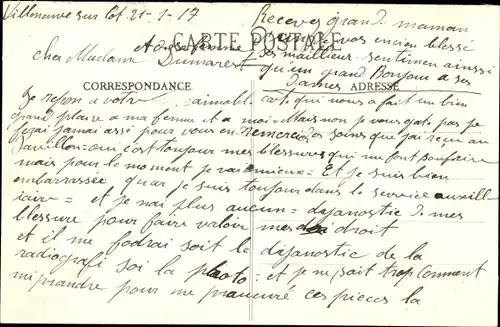 Villeneuve sur Lot 21-1-17
Recevez grand maman
CARTE POSTALE
de vos encien blessé
ses meilleur sentimen ainssi
cher Madame Dumarest
qu'un grand Bonjour a ses
Dames
CORRESPONDANCE
ADRESSE
Je repon a votre aimable carte qui nous a fait un bien
grand plaire a ma femme et a moi = Mais non je vous
ferai jamai assé pour vous en remercier des soins que j'ai reçu au
Pavillon = oui c'est toujour mes blessures qui me font souffrire
mais pour le moment je vai mieux = Et je suis bien
embarrassée quar je suis toujour dans le service auxill
iaire = et je nai plus aucun = dijanostic de mes
blessure pour faire valoir mes droit
et il me fodrai soit le dijanostic de la
radiografi soi la photo = et je ne sait trop Comment
mi prandre pour me procuré ces pieces la